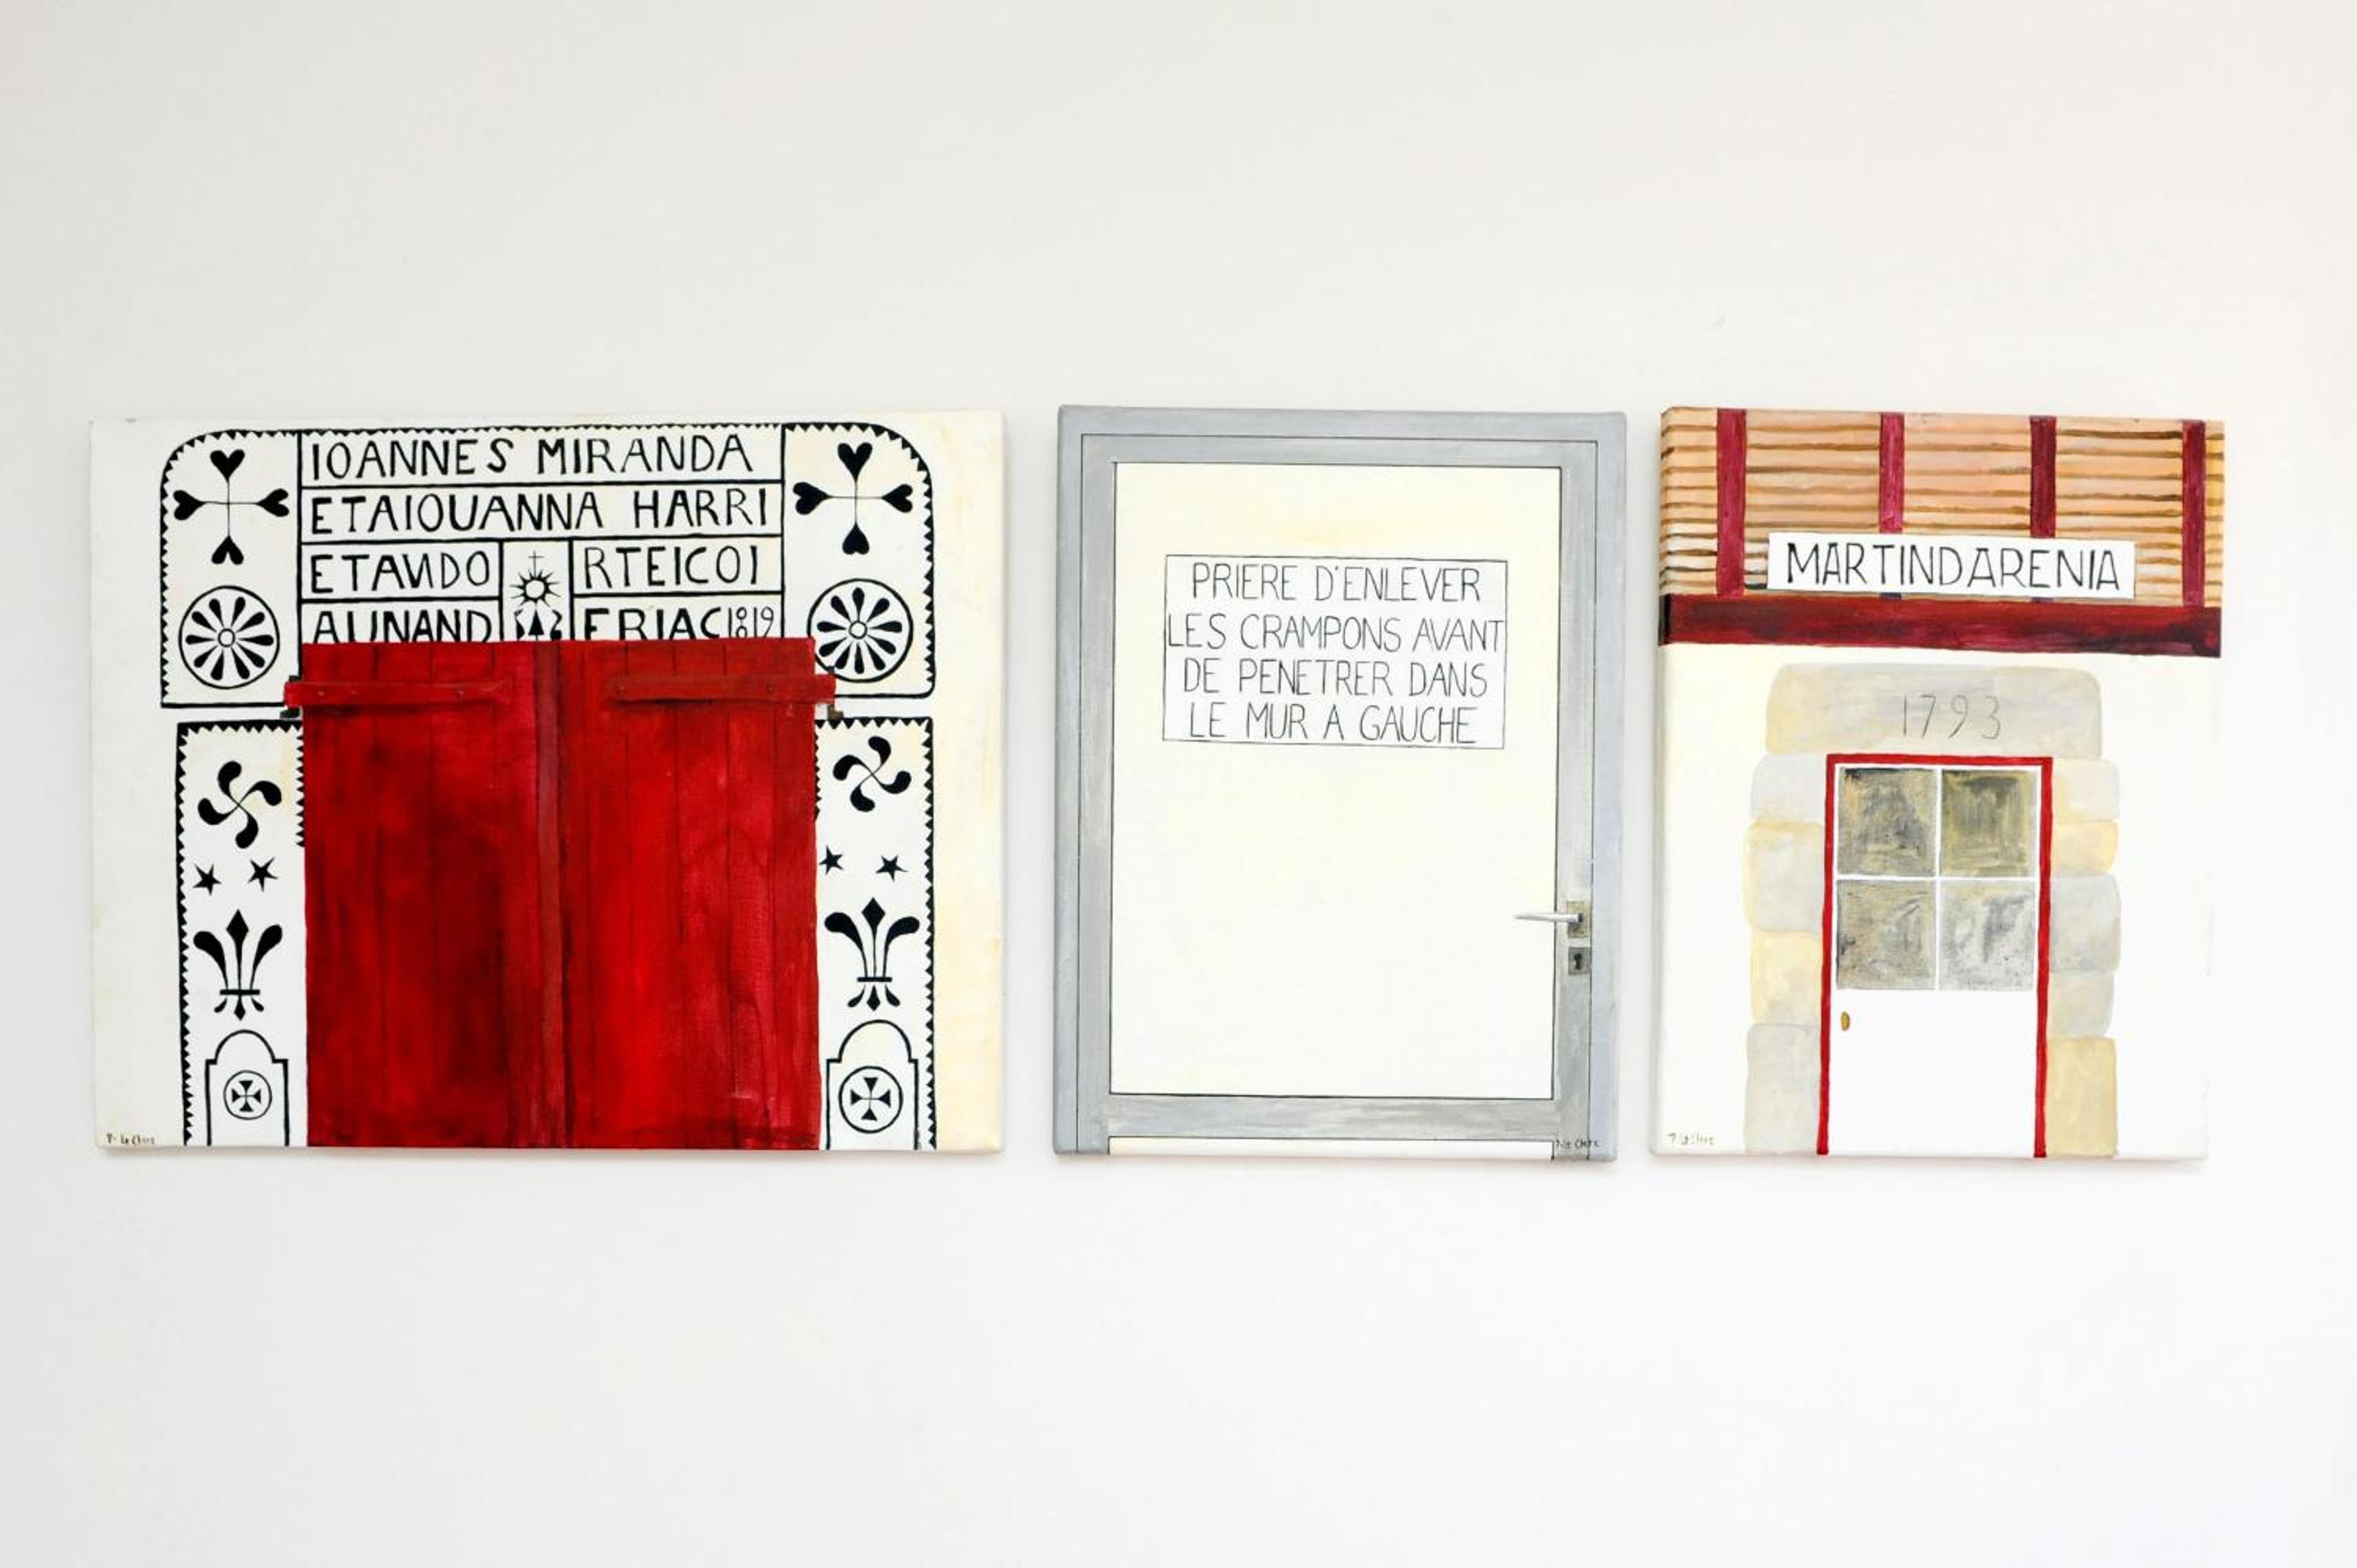 IOANNES MIRANDA
ETAIOUANNA HARRI
ETAUDO RTEICOI
AUNAND ERIAC 1819
P. Le Clerc
PRIERE D'ENLEVER
LES CRAMPONS AVANT
DE PENETRER DANS
LE MUR A GAUCHE
P. Le Clerc
MARTINDARENIA
1793
P. Le Clerc